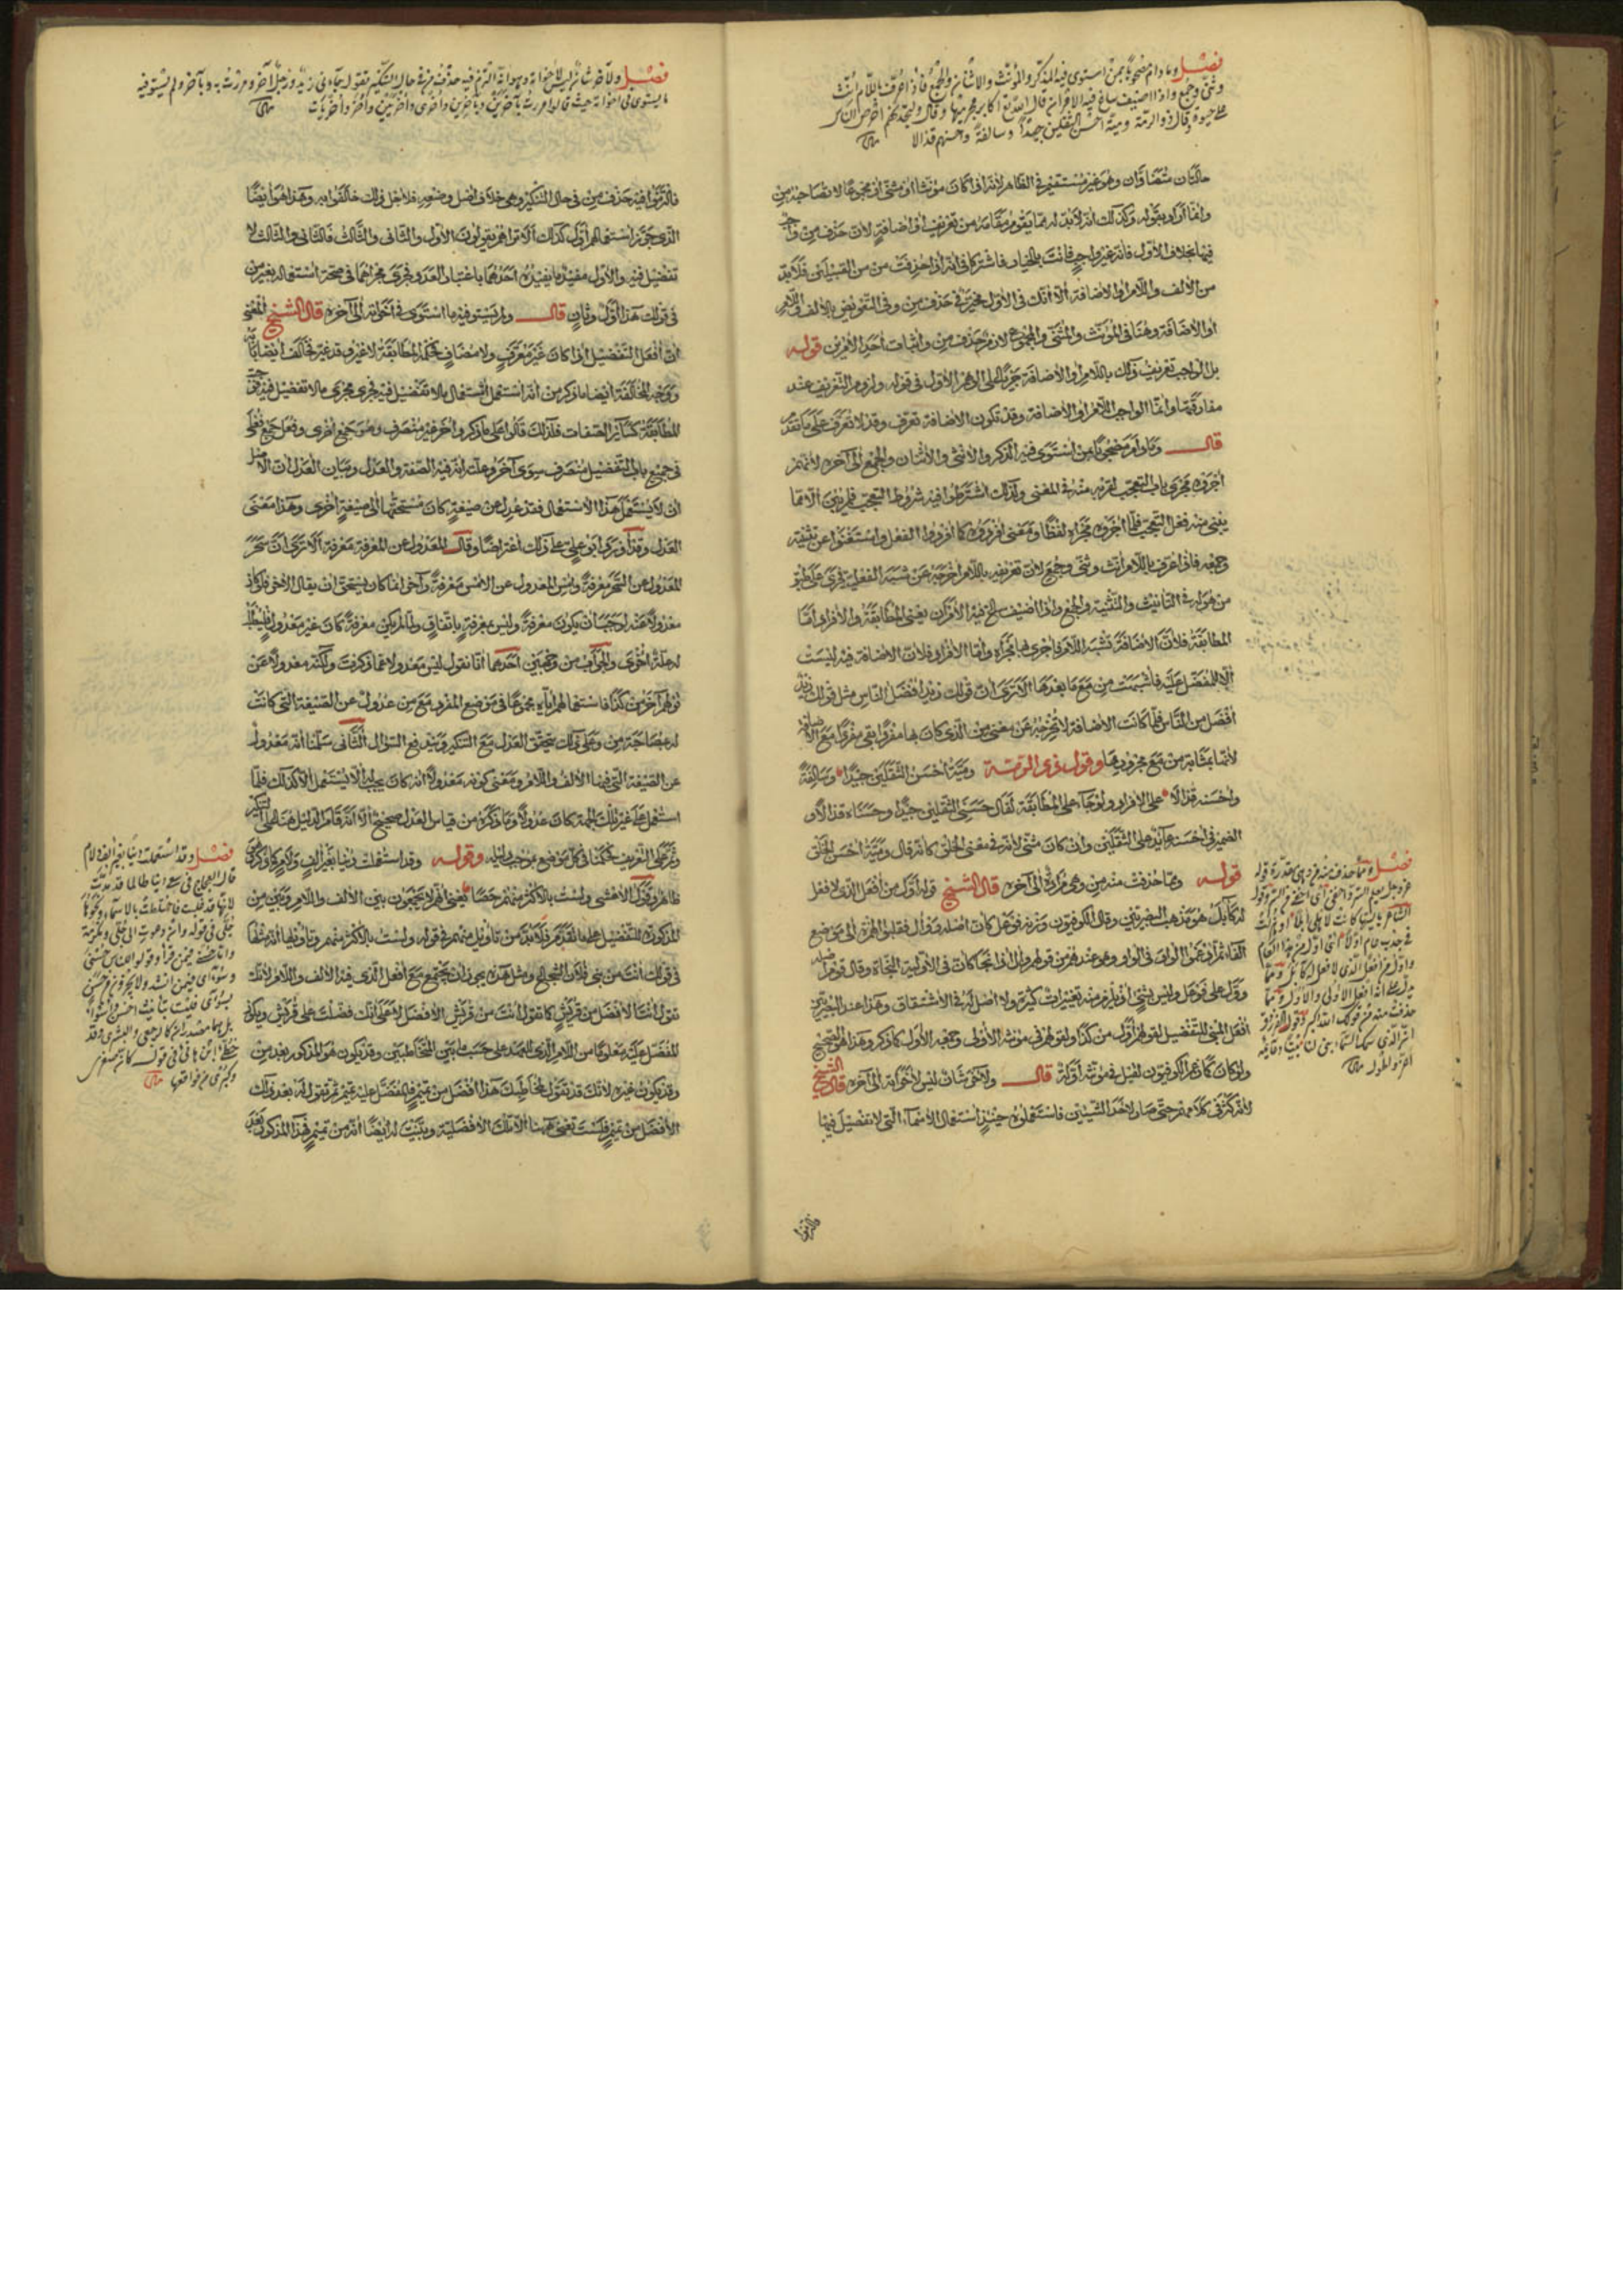 فصل وما دام مصحوبا بمن استوى فيه المذكر والمؤنث والاثنان والجمع فاذا عرّف باللام أنّث
وثنّى وجمع واذا اضيف ساغ فيه الامران قال الله تعالى اكابر مجرميها وقال ولتجدنهم احرص الناس
على حيوة وقال ذو الرمة وميّة احسن الثقلين جيدًا وسالفة واحسنهم قذالا
حالتان متضادّان وهو غير مستقيم في الظاهر لانه اذا كان مؤنثا او مثنى او مجموعا لا تصاحبه من
وانما اراد بقوله وكذلك انه لا بد له مما يقوم مقامه من تعريف او اضافة لان حذف من واجب
فيها بخلاف الاول فانه غير واجب فانت بالخيار فاشتركا في انه اذا حذفت من من القبيلين فلا بد
من الالف واللام او الاضافة الا انك في الاول مخير في حذف من وفي التعويض بالالف واللام
او الاضافة وهنا في المؤنث والمثنى والمجموع لازم حذف من واثبات احد الامرين قوله
بل الواجب تعريف ذلك باللام او الاضافة جريا على الوهم الاول في قوله ولزوم التعريف عند
مفارقتها وانما الواجب اللام او الاضافة وقد تكون الاضافة تعرّف وقد لا تعرّف على ما تقدم
قال وما دام مصحوبا بمن استوى فيه الذكر والانثى والاثنان والجمع الى آخره لانهم
اجروه مجرى باب التعجب لقربه منه في المعنى ولذلك اشترطوا فيه شروط التعجب فلم يبن الا مما
يبنى منه فعل التعجب فلما اجروه مجراه لفظا ومعنى افردوه كما افردوا الفعل واستغنوا عن تثنيته
وجمعه فاذا عرف باللام انث وثنى وجمع لان تعريفه باللام اخرجه عن شبه الفعلية فجرى على طبق
من هو له في التأنيث والتثنية والجمع واذا اضيف ساغ فيه الامران يعنى المطابقة والافراد اما
المطابقة فلان الاضافة تشبه اللام فاجرى بها مجراه واما الافراد فلان الاضافة فيه ليست
الا للمفضل عليه فاشبهت من مع ما بعدها الا ترى ان قولك زيد افضل الناس مثل قولك زيد
افضل من الناس فلما كانت الاضافة لا تخرجه عن معنى من الذي كان بها مفردا بقي مفردا مع الاضافة
لانها بمثابة من مع مجرورها وقول ذى الرمة ومية احسن الثقلين جيدا وسالفة
واحسنه قذالا على الافراد ولو جاء على المطابقة لقال حسنى الثقلين جيدا وحسناه قذالا و
الضمير في احسنه عائد على الثقلين وان كان مثنى لانه في معنى الخلق كانه قال ومية احسن الخلق
قوله ومما حذفت منه من وهي مرادة الى آخره قال الشيخ قوله اول من افعل الذي لا فعل
له كآبل هو مذهب البصريين وقال الكوفيون وزنه فوعل كان اصله ووأل فقلبوا الهمزة الى موضع
الفاء ثم ادغموا الواو في الواو وهو عندهم من قولهم وأل اذا نجا كان في الاولية النجاة وقال قوم اصله
ووّل على فوعل وليس بشيء اذ يلزم منه تغييرات كثيرة ولا اصل له في الاشتقاق وهذا عند البصريين
افعل المبنى للتفضيل لقولهم اول من كذا ولقولهم في مؤنثه الأولى وجمعه الأول كما ذكر وهذا هو الصحيح
ولو كان كما زعم الكوفيون لقيل في مؤنثه اوّلة قال ولآخر شان ليس لأخواته الى آخره قال الشيخ
لانه كثر في كلامهم حتى صار لاحد الشيئين فاستعملوه حينئذ استعمال الاسماء التي لا تفضيل فيها
فالتزموا
فصل ومما حذفت منه من وهي مقدّرة قوله
عز وجل يعلم السر واخفى اى اخفى من السر وقول
الشاعر يا ليتها كانت لاهلى ابلا او هزلت
في جدب عام اوّلا اى اول من هذا العام
واول من افعل الذي لا فعل له كآبل ومما
يدل على انه افعل الاولى والاول ومما
حذفت منه من قولك الله اكبر وقول الفرزدق
ان الذى سمك السماء بنى لنا بيتا دعائمه
اعز واطول
فصل ولآخر شان ليس لأخواته وهو انه التزم فيه حذف من في حال التنكير تقول جاءنى زيد ورجل آخر ومررت به وبآخر ولم يستو فيه
ما يستوى في اخواته حيث قالوا مررت بآخرين وبآخرين واخرى واخريين واخر واخريات
فالتزموا فيه حذف من في حال التنكير وهي خلاف افضل وضعه فلاجل ذلك خالفوا به وهذا هو ايضا
الذي جوز استعمالهم اول كذلك الا تراهم يقولون الاول والثانى والثالث فالثانى والثالث لا
تفضيل فيه والاول مقيد ما يفيده احدهما باعتبار العدد فجرى مجراهما في صحة استعماله بغير من
في قولك هذا اول وثان قال ولم يستو فيه ما استوى في اخواته الى آخره قال الشيخ المعنى
ان افعل التفضيل اذا كان غير معرف ولا مضاف
ووجه المخالفة ايضا ما ذكر من انه استعمل استعمال ما لا تفضيل فيه فجرى مجرى ما لا تفضيل فيه حتى
المطابقة كسائر الصفات فلذلك قالوا على ما ذكر واخر غير منصرف وهو جمع اخرى وفعل جمع فعلى
في جميع باب التفضيل منصرف سوى آخر وعلته انه فيه الصفة والعدل وبيان العدل ان الاصل
ان لا يستعمل هذا الاستعمال فقد عدل عن صيغة كان مستحقها الى صيغة اخرى وهذا معنى
العدل وقد اورد ابو على على ذلك اعتراضا وقال المعدول عن المعرفة معرفة الا ترى ان سحر
المعدول عن السحر معرفة وامس المعدول عن الامس معرفة وآخر انما كان ينبغى ان يقال الآخر فلو كان
معدولا عنه لوجب ان يكون معرفة وليس بمعرفة باتفاق ولما لم يكن معرفة كان غير معدول فليطلب
له علة اخرى والجواب من وجهين احدهما انا نقول ليس معدولا عما ذكرت ولكنه معدول عن
قولهم آخر من كذا فاستعمالهم اياه مجموعا في موضع المفرد مع من عدول عن الصيغة التي كانت
له بمصاحبة من وعلى ذلك يتحقق العدل مع التنكير ويندفع السؤال الثانى سلمنا انه معدول
عن الصيغة التي فيها الالف واللام ومعنى كونه معدولا انه كان يجب ان لا يستعمل الا كذلك فلما
استعمل على غير تلك الجهة كان عدولا وما ذكره من قياس العدل صحيح الا انه قام الدليل هنا على التنكير
وقوله وقد استعملت دنيا بغير الف ولام
ظاهر وقول الاعشى ولست بالاكثر منهم حصا يعنى انهم لا يجمعون بين الالف واللام وبين من
المذكورة للتفضيل على ما تقدم فلا بد من تاويل منهم في قوله ولست بالاكثر منهم وتاويلها انه مثلها
في قولك انت من بنى فلان الشجاع ومثل هذه يجوز ان يجتمع مع افعل الذي فيه الالف واللام لانك
تقول انت الافضل من قريش كما تقول انت من قريش الافضل لا على انك فضلت على قريش ويكون
المفضل عليه معلوما من اللام التي للعهد على حسب ما بين المخاطبين وقد يكون هو المذكور بعد من
وقد يكون غيره لانك قد تقول لمخاطبك هذا افضل من تميم فالمفضل عليه تميم ثم تقول له بعد ذلك
الافضل من تميم فلست تعنى ههنا الا تلك الافضلية وبينت له ايضا انه من تميم فهذا المذكور بعد
فصل وقد استعملت دنيا بغير الف ولام
قال العجاج في سعى دنيا طالما قد مدّت
لانها قد غلبت فاختلطت بالاسماء ونحوها
جلّى في قوله وان دعوت الى جلّى ومكرمة
واما حسنى فيمن قرأ وقولوا للناس حسنى
وسوءى فيمن انشد ولا يجزون من حسن
بسوءى فليستا بتأنيث احسن واسوأ
بل هما مصدران كالرجعى والبشرى وقد
خطّئ ابن هانئ في قوله كان صغرى
وكبرى من فواقعها